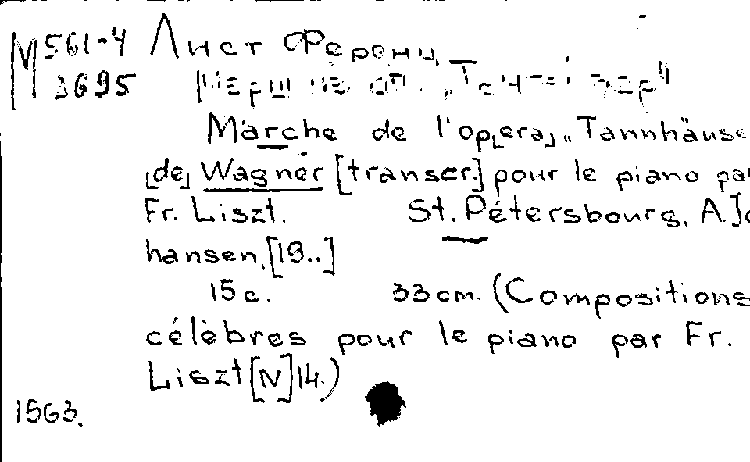 М 561-4 Лист Ференц
3695 Марш из оп. „Тангейзер"
Marche de l'op[era] „Tannhäuse
[de] Wagner [transcr.] pour le piano pa
Fr. Liszt. St. Pétersbourg, A. Jo
hansen, [19..]
15 с. 33 cm. (Compositions
célèbres pour le piano par Fr.
Liszt [N] 14.)
1563.